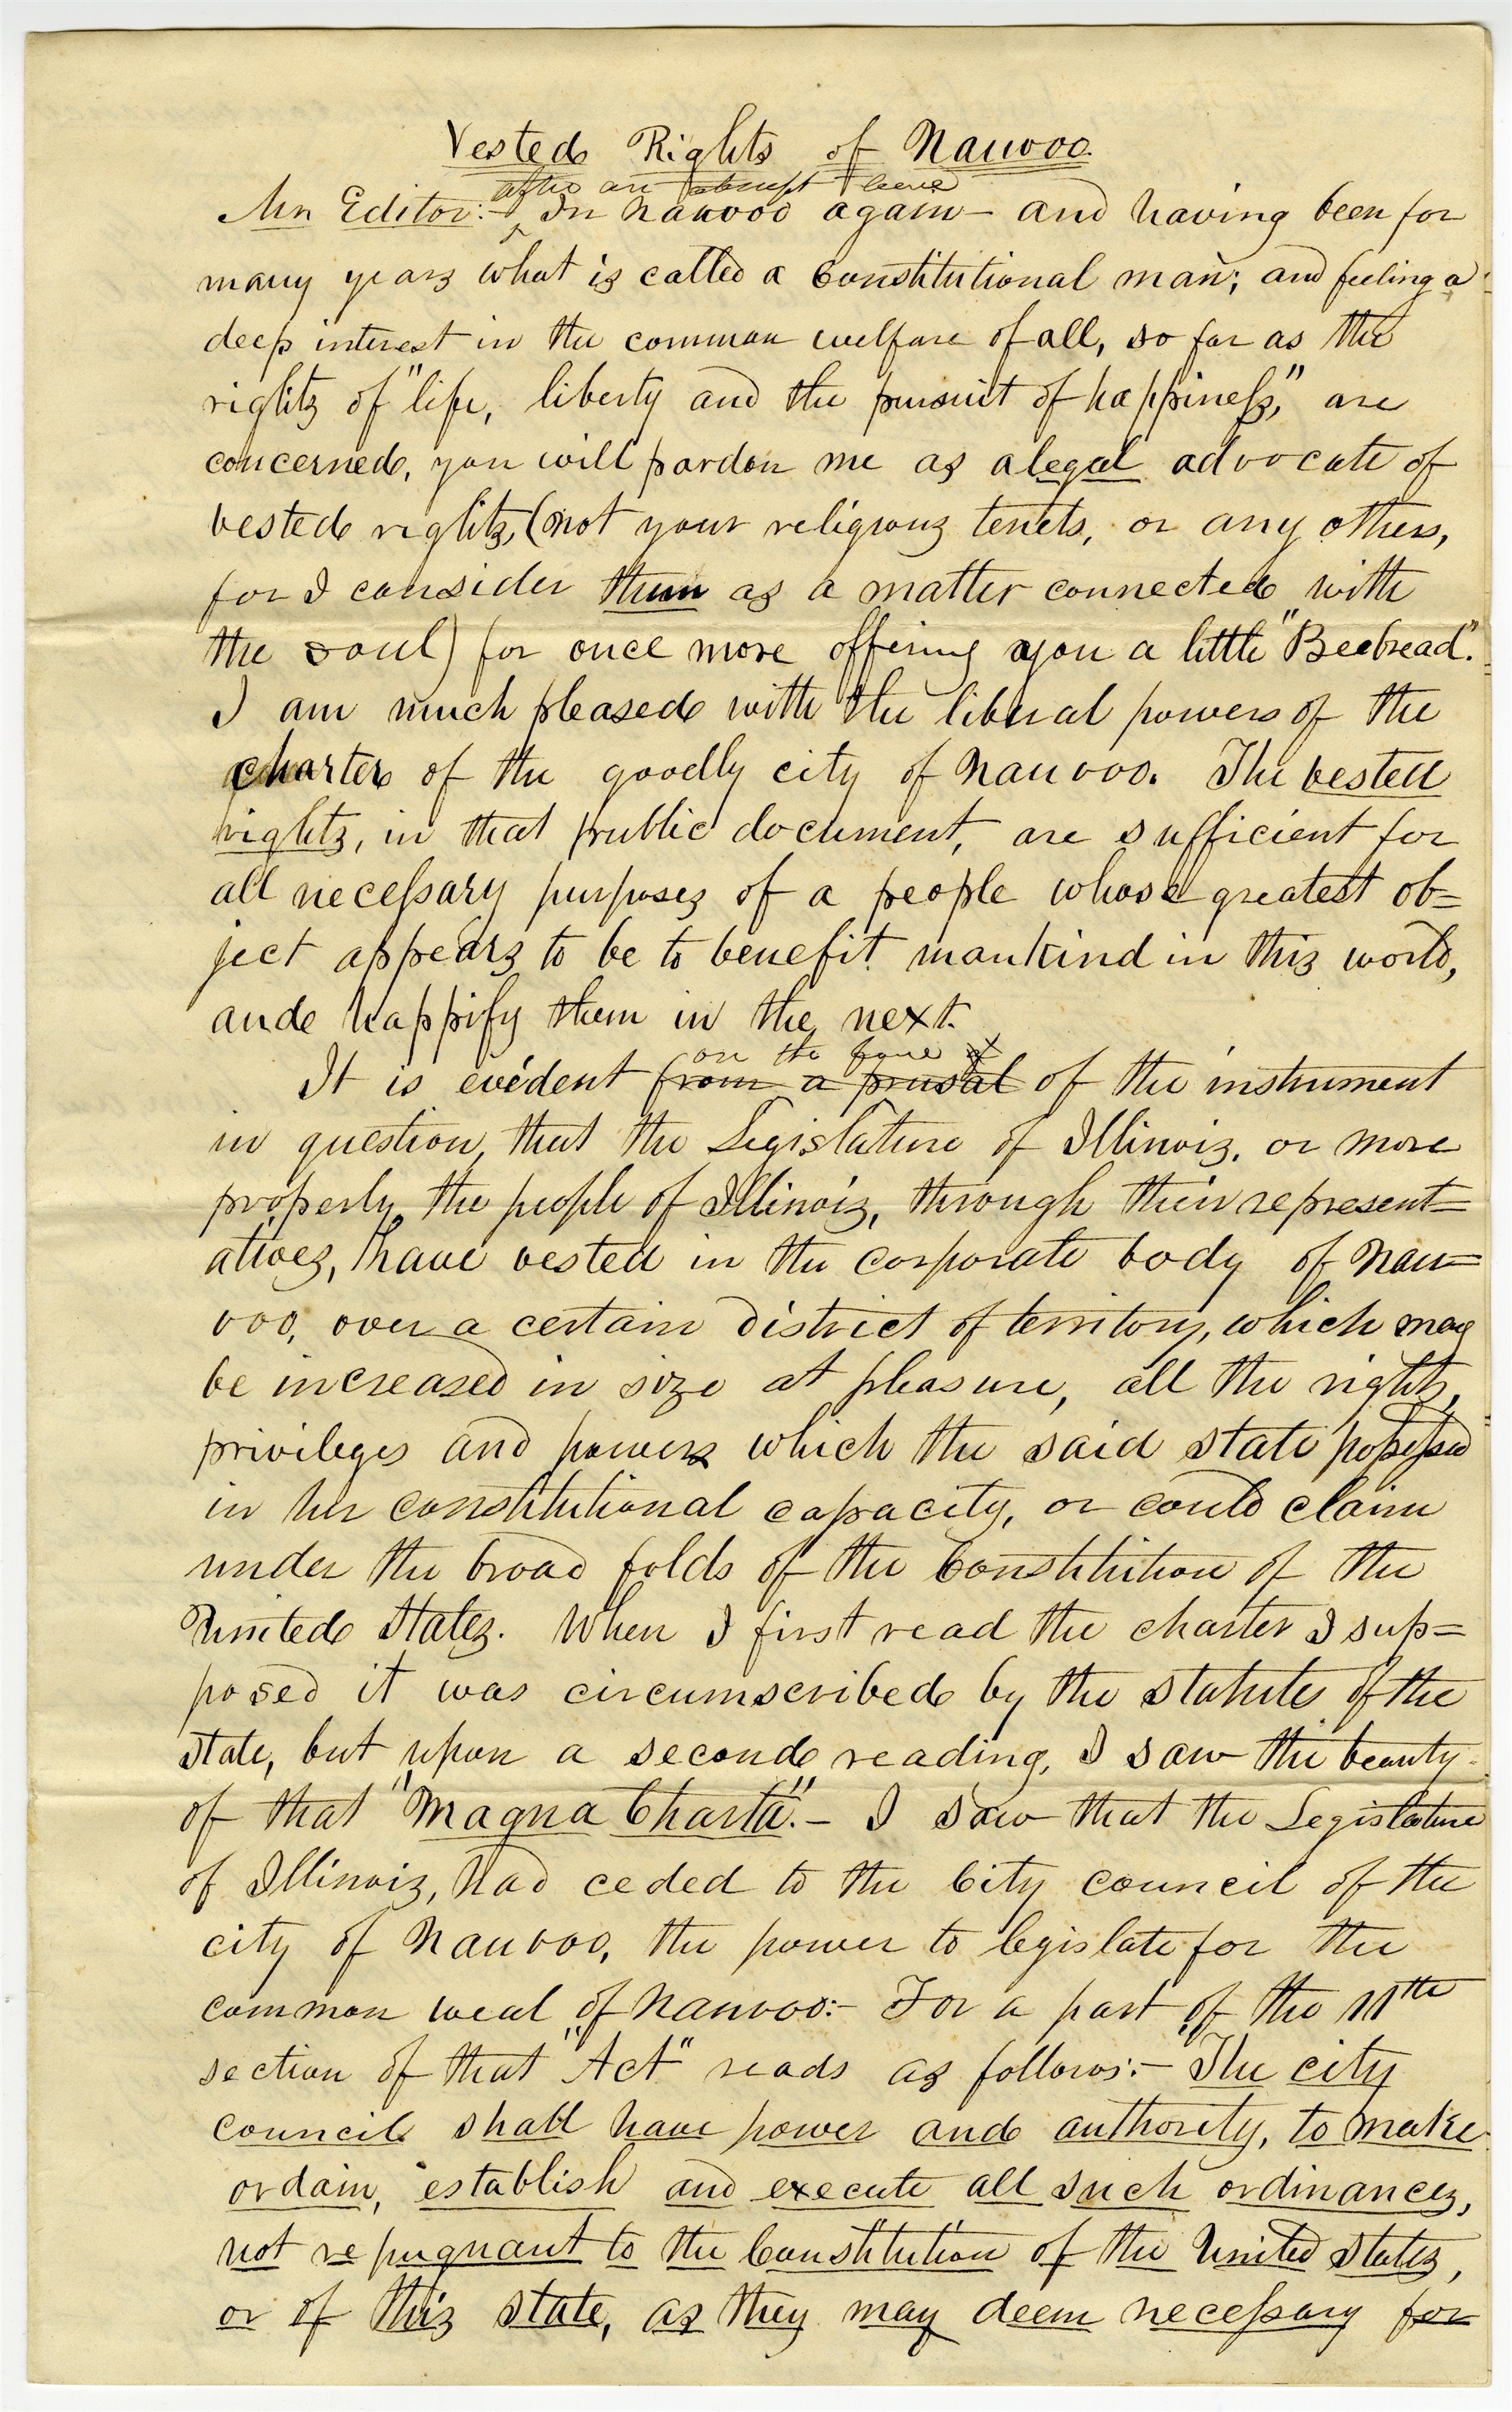 Vested Rights of Nauvoo.
after an abrupt leave
Mr Editor:— In Nauvoo again— and having been for
many years what is called a Constitutional man; and feeling a
deep interest in the common welfare of all, so far as the
rights of "life, liberty and the pursuit of happiness," are
concerned, you will pardon me as a legal advocate of
vested rights, (not your religious tenets, or any others,
for I consider them as a matter connected with
the soul) for once more offering you a little "Beebread".
I am much pleased with the liberal powers of the
charter of the goodly city of Nauvoo. The vested
rights, in that public document, are sufficient for
all necessary purposes of a people whose greatest ob=
ject appears to be to benefit mankind in this world,
and happify them in the next.
on the face of
It is evident from a prusal of the instrument
in question, that the Legislature of Illinois, or more
properly, the people of Illinois, through their represent=
atives, have vested in the corporate body of Nau=
voo, over a certain district of territory, which may
be increased in size at pleasure, all the rights,
privileges and powers which the said state possessed
in her constitutional capacity, or could claim
under the broad folds of the Constitution of the
United States. When I first read the charter I sup=
posed it was circumscribed by the statutes of the
state, but upon a second reading, I saw the beauty
of that "Magna Charta".— I saw that the Legislature
of Illinois, had ceded to the City council of the
city of Nauvoo, the power to legislate for the
common weal of Nauvoo:— For a part of the 11th
section of that "Act" reads as follows:— "The city
council shall have power and authority, to make
ordain, establish and execute all such ordinances,
not repugnant to the Constitution of the United States,
or of this state, as they may deem necessary for